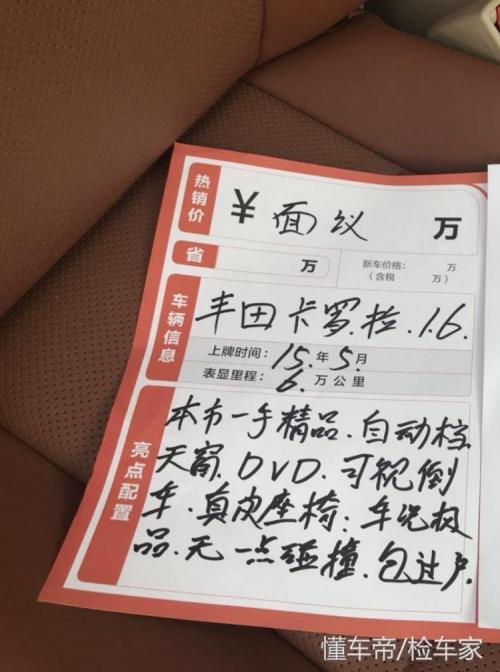 热销价 ¥ 面议 万
省 万 新车价格: 万
(含税 万)
车辆信息
丰田卡罗.拉.1.6.
上牌时间: 15 年 5 月
表显里程: 6 万公里
亮点配置
本市一手精品.自动档
天窗.DVD.可视倒
车.真皮座椅:车况极
品.无一点碰撞.包过户.
懂车帝/检车家